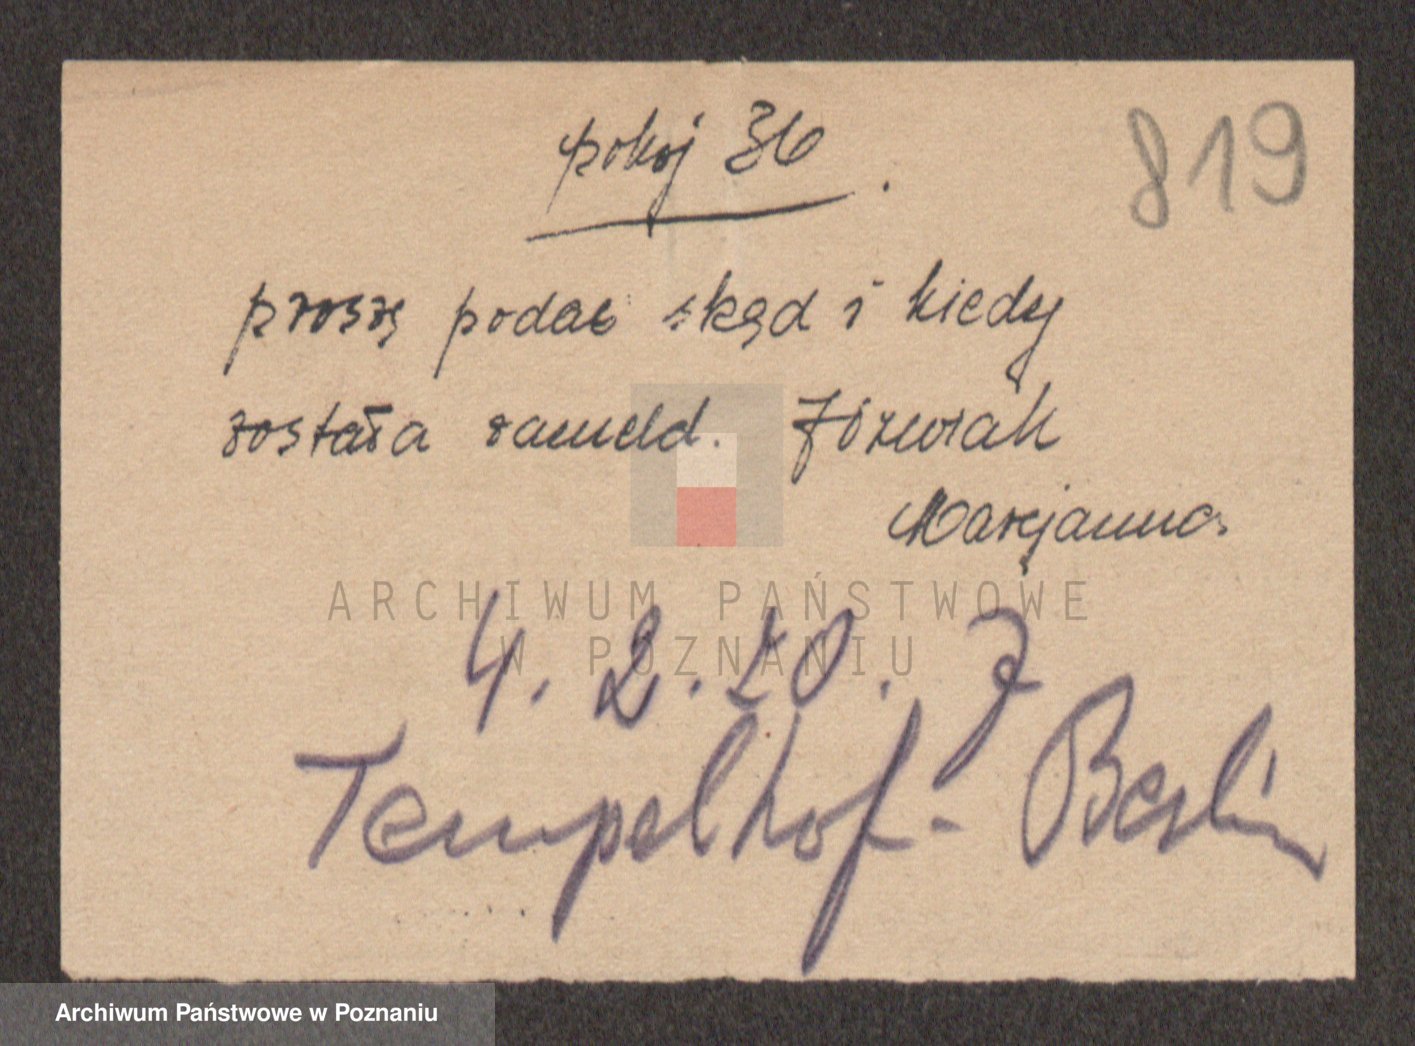 pokój 36.
819
proszę podać skąd i kiedy
została zameld. Józwiak
Marjanna.
ARCHIWUM PAŃSTWOWE
W POZNANIU
4. 2. 20. z
Tempelhof - Berlin
Archiwum Państwowe w Poznaniu